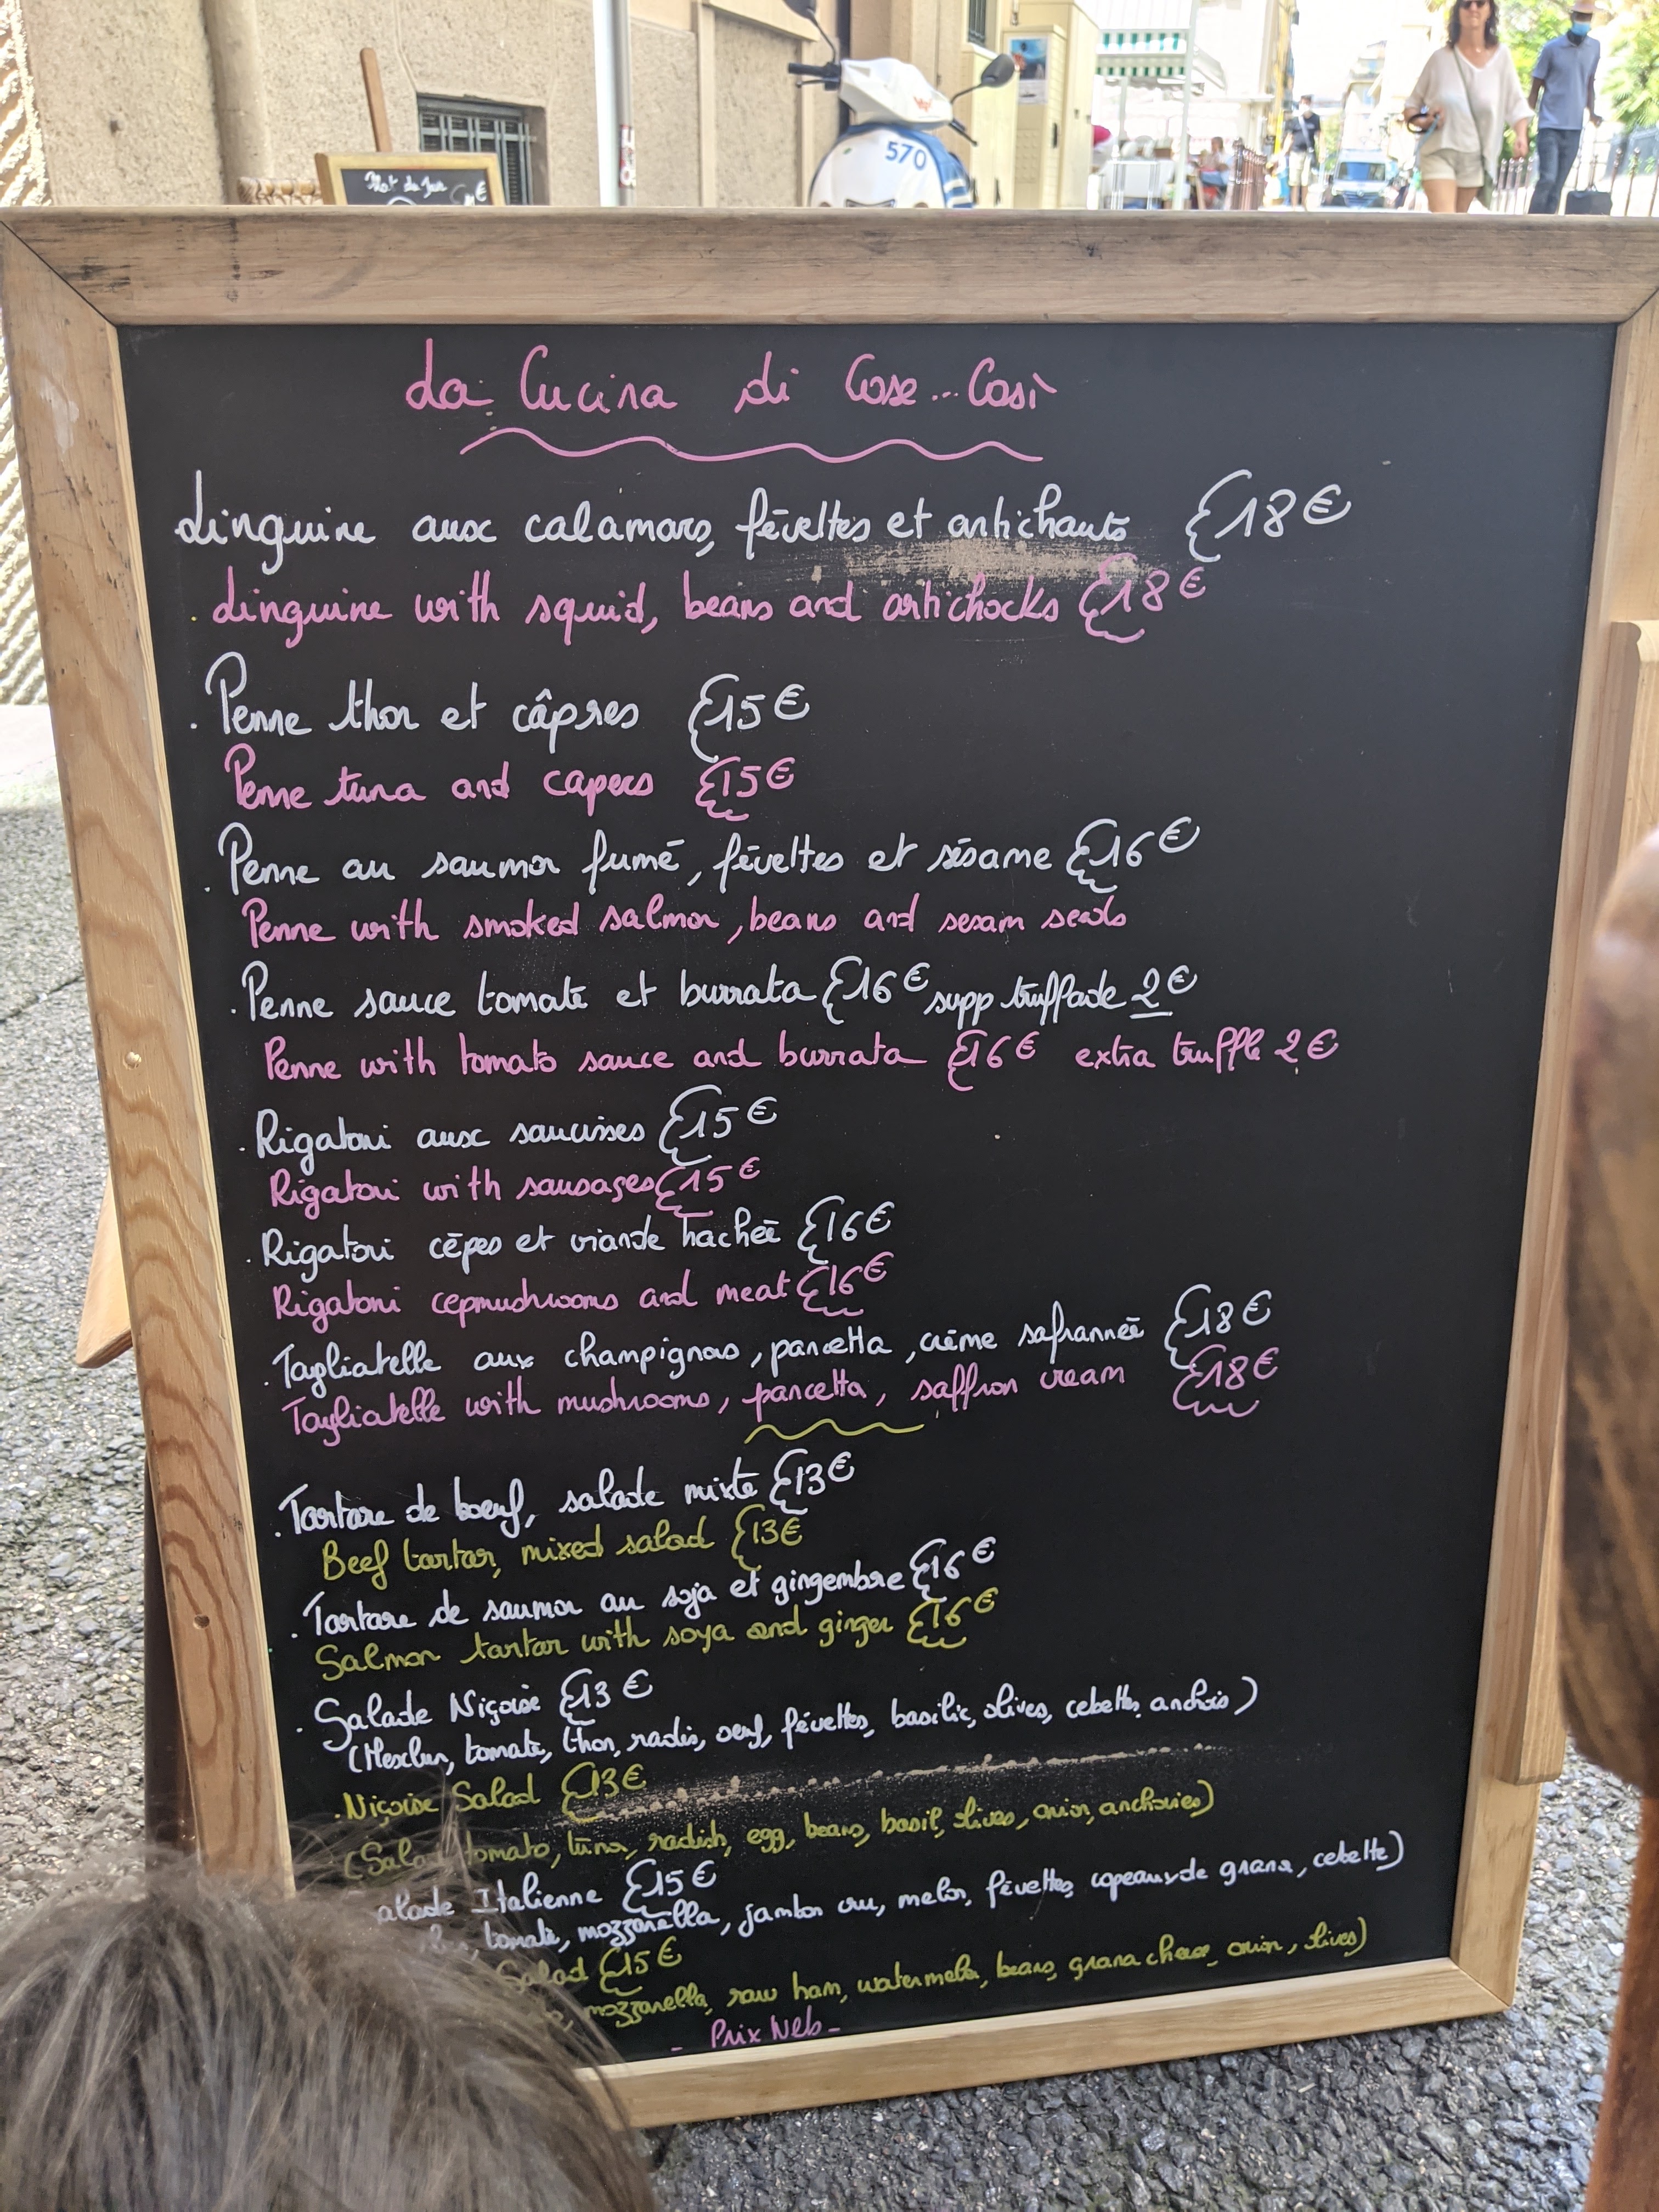 Plat du Jour
570
La Cucina di Cose...Così
Linguine aux calamars, févettes et artichauts 18€
. Linguine with squid, beans and artichocks 18€
. Penne thon et câpres 15€
Penne tuna and capers 15€
. Penne au saumon fumé, févettes et sésame 16€
Penne with smoked salmon, beans and sesam seeds
. Penne sauce tomate et burrata 16€ supp truffade 2€
Penne with tomato sauce and burrata 16€ extra truffle 2€
. Rigatoni aux saucisses 15€
Rigatoni with sausages 15€
. Rigatoni cèpes et viande hachée 16€
Rigatoni cepmushrooms and meat 16€
. Tagliatelle aux champignons, pancetta, crème safrannée 18€
Tagliatelle with mushrooms, pancetta, saffron cream 18€
. Tartare de boeuf, salade mixte 13€
Beef tartar, mixed salad 13€
. Tartare de saumon au soja et gingembre 16€
Salmon tartar with soya and ginger 16€
. Salade Niçoise 13€
(Mesclun, tomate, thon, radis, oeuf, févettes, basilic, olives, cebette, anchois)
. Niçoise Salad 13€
(Salad tomato, tuna, radish, egg, beans, basil, olives, onion, anchovies)
alade Italienne 15€
tomate, mozzarella, jambon cru, melon, févettes, copeaux de grana, cebette)
Salad 15€
mozzarella, raw ham, watermelon, beans, grana cheese, onion, olives)
- Prix Net -